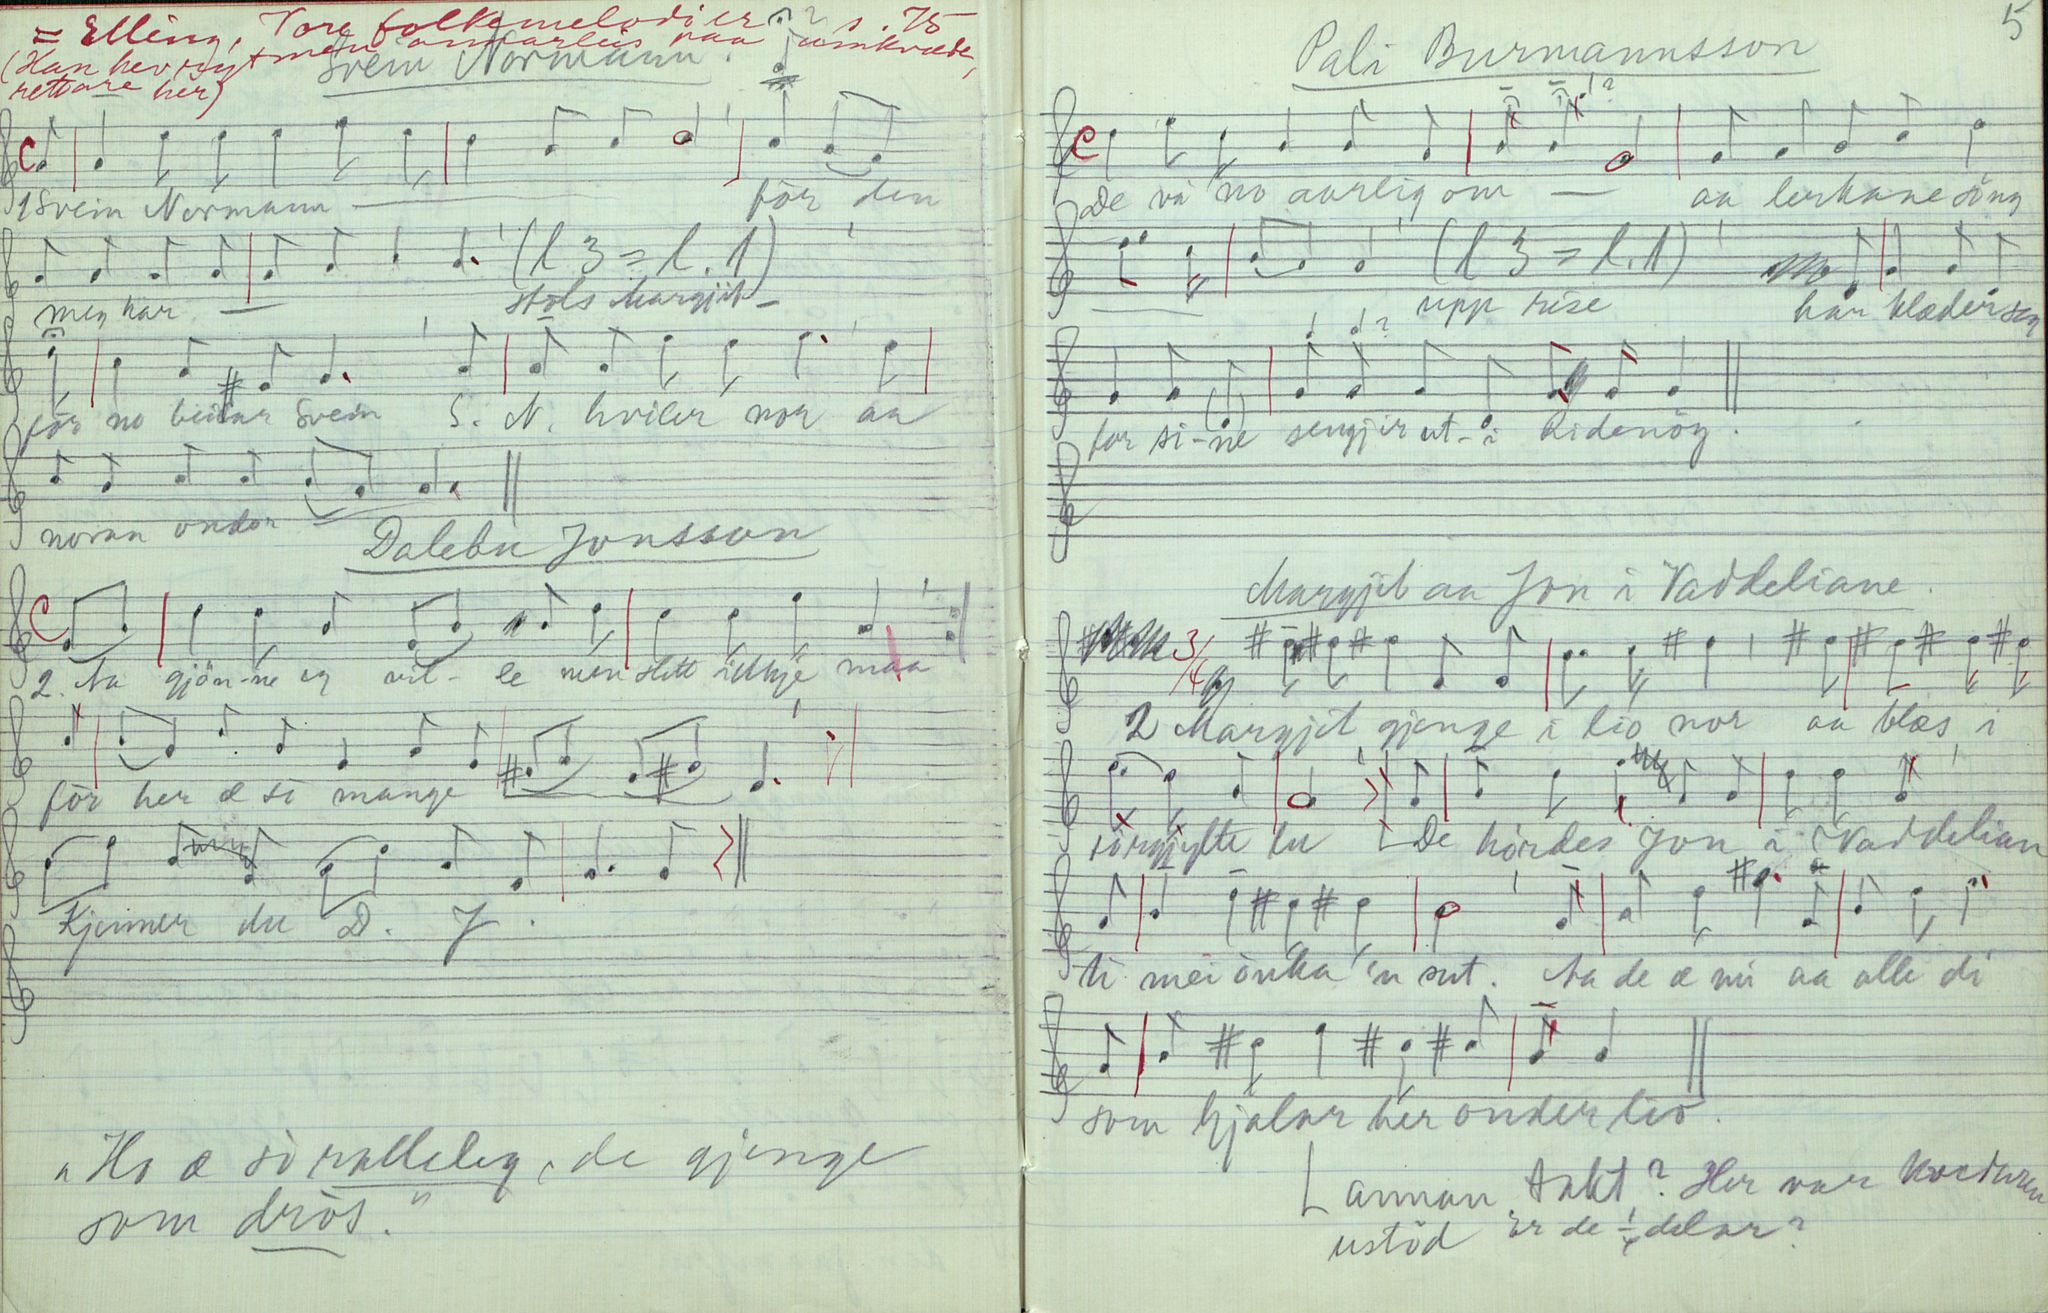 = Elling, Vore folkemelodier s. 75
(Han hev nyt men annarleis paa umkvæde,
rettare her)
Svein Normann.
1 Svein Normann — för den
meg har — (l 3 = l. 1)
stols Margjit –
för no beilar Svein S. N. hviler nor aa
noran ondor
Dalebu Jonsson
2. Aa gjön-ne eg vil-le men slett ikkje maa
för her æ si mange
Kjenner du D. J.
"Ho æ so ralleleg, de gjenge
som drös."
5
Pali Burmannsson
De va no aarlig om — aa lerkane söng
(l 3 = l. 1)
upp rise han klæder seg
for si-ne sengjir ut-i Ridenög.
Margjit aa Jon i Vaddeliane.
3/4
2 Margjit gjenge i lio nor aa blæs i
sörgjylte lu De hördes Jon i Vaddelian
ti mei önka 'n sut. Aa de æ mi aa alle di
som hjalar her onder lio.
annan takt? Her var kvedaren
ustöd Er de 1/4 delar?